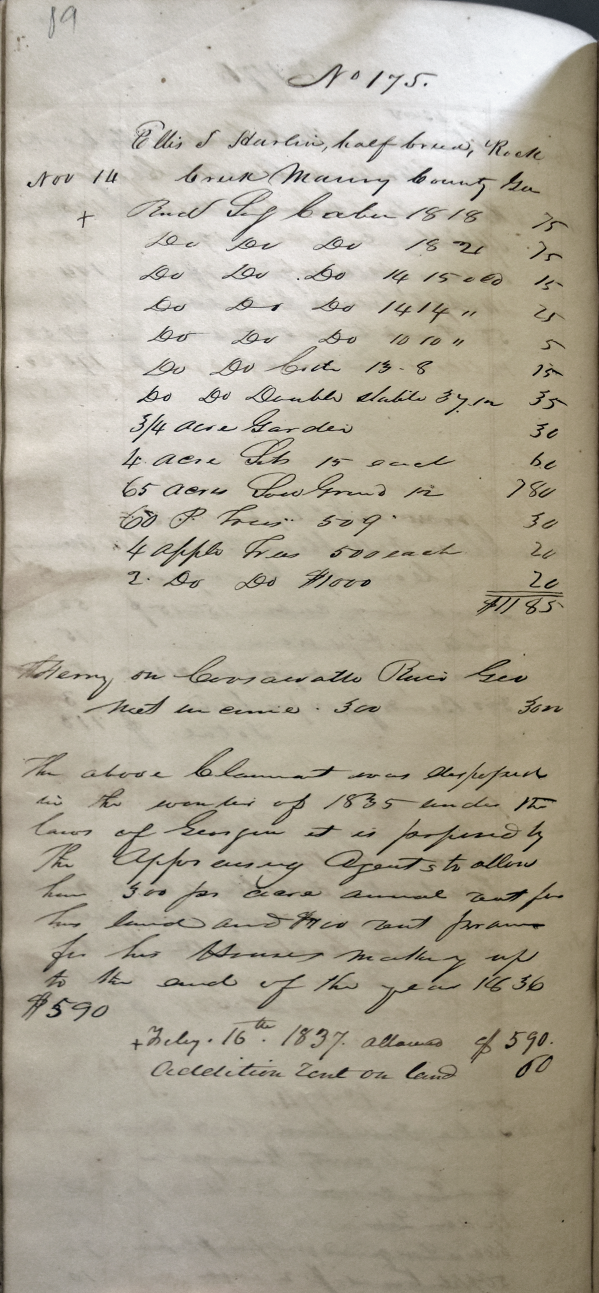 89
No 175.
Ellis S Harlin, half breed, Rock
Nov 14 Creek Maury County Geo
+ Rud Log Cabin 18 18 75
Do Do Do 18 21 75
Do Do Do 14 15 old 15
Do Do Do 14 14 " 25
Do Do Do 10 10 " 5
Do Do Crib 13-8 15
Do Do Double stable 37.12 35
3/4 acre Garden 30
4 acre Lots 15 each 60
65 acres Low Ground 12 780
60 P. Trees 50 9 30
4 apple Trees 500 each 20
2. Do Do $1000 20
$1185
Ferry on Coosawatte River Geo
Net income. 300 3000
The above Claimant was dispossed
in the winter of 1835 under the
laws of Georgia it is proposed by
The Appraising Agents to allow
him 300 per acre annual rent for
his land and $100 rent pr ann
for his Houses making up
to the end of the year 1836
$590
+ Feby. 16th. 1837. allowed of 590.
addition rent on land 60